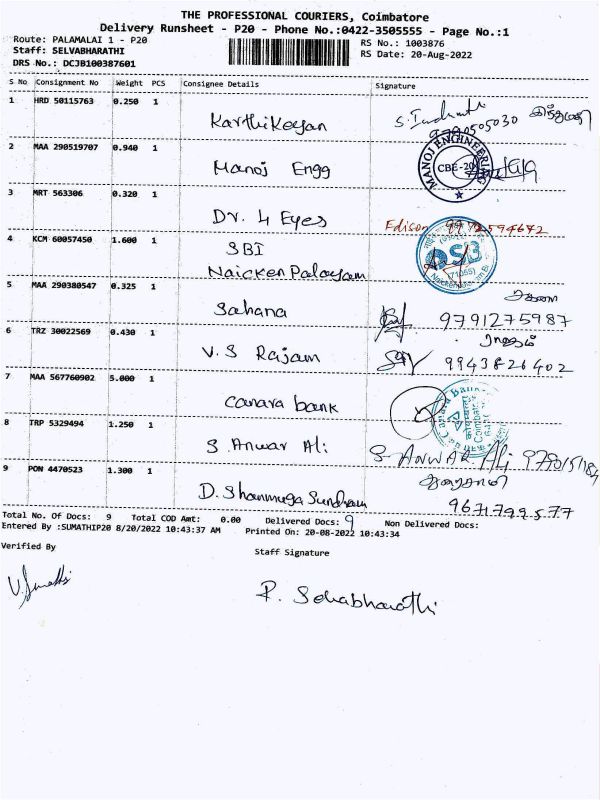 THE PROFESSIONAL COURIERS, Coimbatore
Delivery Runsheet - P20 - Phone No.:0422-3505555 - Page No.:1
Route: PALAMALAI 1 - P20
RS No.: 1003876
Staff: SELVABHARATHI
RS Date: 20-Aug-2022
DRS No.: DCJB100387601
S No Consignment No Weight PCS Consignee Details Signature
1 HRD 50115763 0.250 1
Karthikeyan
2 MAA 290519707 0.940 1
Manoj Engg
MANOJ ENGINEERING
CBE-20
3 MRT 563306 0.320 1
Dr. 4 Eyes
Edison
4 KCM 60057450 1.600 1
SBI
Naicken Palayam
SBI
5 MAA 290380547 0.325 1
சகானா
Sahana 9791275987
6 TRZ 30022569 0.430 1
V.S Rajam 9943826402
7 MAA 567760902 5.000 1
Canara bank
Canara Bank
8 TRP 5329494 1.250 1
S Anwar Ali
S ANWAR Ali
9 PON 4470523 1.300 1
D. Shanmuga Sundram
Total No. Of Docs: 9 Total COD Amt: 0.00 Delivered Docs: 9 Non Delivered Docs:
Entered By :SUMATHIP20 8/20/2022 10:43:37 AM Printed On: 20-08-2022 10:43:34
Verified By
Staff Signature
V. Sumathi
P. Selvabharathi